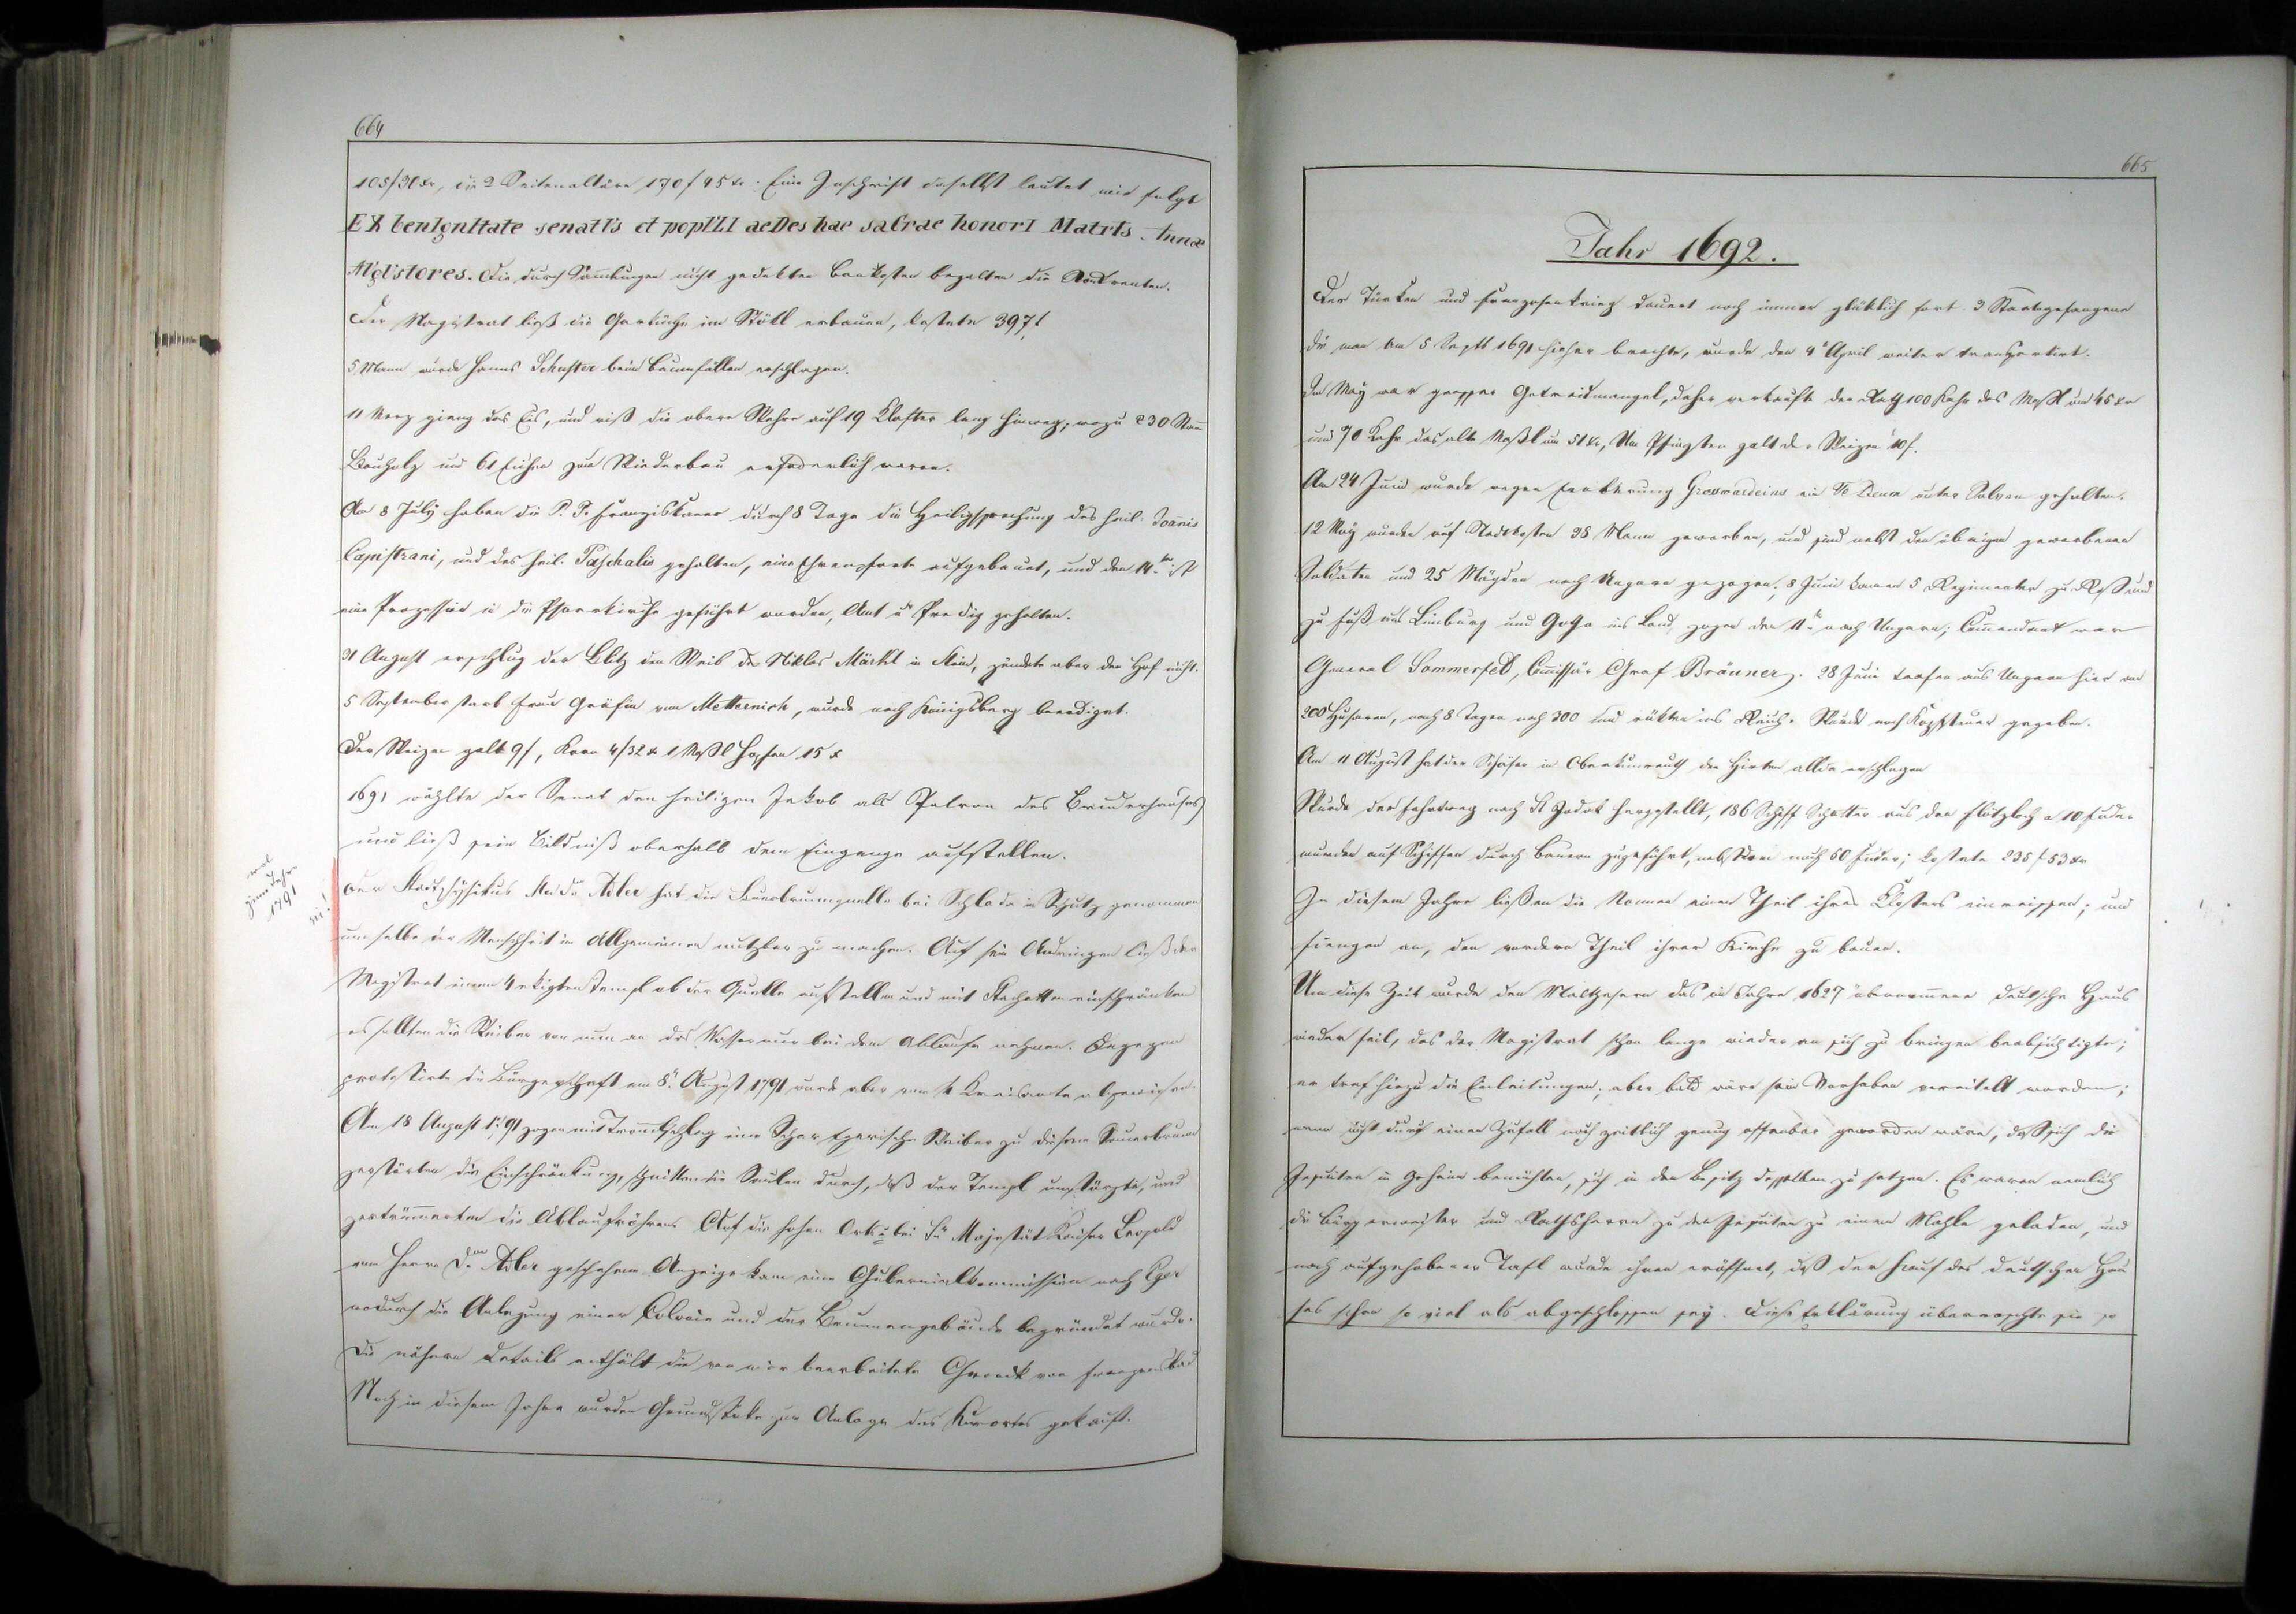 664
105f 30 xr, die 2 Seitenaltäre 170 f 45 xr. Eine Inschrift daselbst lautet wie folgt
EX benIgnItate senatUs et popULI aeDes hae saCrae honorI MatrIs Annae
AUgUstores. Die durch Sammlungen nicht gedekten Baukosten bezalten die
Der Magistrat ließ die Garküche im Stökl erbauen, kostete 397 f
5 wurde Hanns Schuster beim Baumfällen erschlagen.
11 Merz gieng das Eis, und riß die obere Wehre auf 19 Klafter lang hinweg, wozu 230 Stam
Bauholz und 61 Eichen zum Wiederbau erfoderlich waren.
Am 8 July haben die P. P. Franziskaner durch 8 Tage die Heiligsprechung des heil. Joannis
Capistrani, und des heil. Paschalis gehalten, eine Ehrenpforte aufgebauet, und den 14ten ist
eine Prozession in die Pfarrkirche geführt worden, Amt u Predig gehalten.
31 August erschlug der Blitz den Weib des Niklas Märkl in Stein, zündete aber den Hof nicht.
5 September starb Frau Gräfin von Metternich, wurde nach Königsberg beerdiget.
Der Weizen galt 9 f, Korn 4 f 32 xr 1 Maßl Hopfen 15 x
1691 wählte der Senat den heiligen Jakob als Patron des Bruderhauses
und ließ sein Bildniß oberhalb dem Eingange aufstellen.
Der Stadtphysikus Adler hat die Sauerbrunnquelle bei Schlada in Schutz genommen
um selbe der Menschheit im Allgemeinen nutzbar zu machen. Auf sein Andringen ließ der
Magistrat einen 4 ekigten Templ ob der Quelle aufstellen und mit Stacheten einschränken
es sollten die Weiber von nun an das Wasser nur bei dem Ablaufe nehmen. Dagegen
protestirte die Bürgerschaft am 8. August 1791 wurde aber vom k Kreisamte abgewiesen.
Am 18 August 1791 zogen mit Tromelschlag eine Schar Egerischer Weiber zu diesem Sauerbrunn
zerstörten die Einschränkung, schnitten die Saulen durch, daß der Templ umstürzte, und
zertrümmerten die Ablaufröhren. Auf die hohen Orts u bei Sr Majestät Kaiser Leopold
vom Herrn Dor Adler geschehene Anzeige kam eine Gubernialkommission nach Eger
wodurch die Anlegung einer Colonie und der Brunnengebäude begründet wurde.
Die nähern Details enthält die von mir bearbeitete Chronik von Franzensbad
Noch in diesem Jahre wurden Grundstüke zur Anlage des Kurortes gekauft.
1791
665
Jahr 1692.
Der Türken und Franzosenkrieg dauert noch immer glüklich fort. 3 Staatsgefangene
die man am 5 Septb 1691 hieher brachte, wurde den 4t April weiter transportirt.
Im May war grosser Getreidmangel, daher verkaufte der Rath 100 Kahr das Maßl um 45 xr
und 70 Kahr das alte Maßl um 51 xr, Um Pfingsten galt der Weizen 10 f.
Am 24 Juni wurde wegen Eroberung Groswardeins ein Te Deum unter Salven gehalten.
12 May wurden auf Stadtkosten 38 Mann geworben, und sind nebst den übrigen geworbenen
Soldaten und 25 Mägden nach Ungarn gezogen; 8 Juni kamen 5 Regimenter zu Roß und
zu Fuß aus Lünburg und Gotha ins Land, zogen den 11t nach Ungarn; Commandant war
General Sommerfeld, Commissär Graf Bräuner. 28 Juni trafen aus Ungarn hier ein
200 Husaren, nach 8 Tagen noch 300 und rükten ins Reich. Wurde noch Kopfsteuer gegeben.
Am 11 August hat der Schäfer in Oberkunreuth den Hirten allda erschlagen
Wurde der Fahrtweg nach St Jodok hergestellt, 186 Schiff Schotter aus dem Flötzloch a 10 Fuder
wurden auf Schiffen durch Bauern zugeführt, nebst dem noch 60 Fuder; kostete 235 f 53 xr
In diesem Jahre ließen die Nonnen einen Theil ihres Klosters einreissen; und
fiengen an, den vordern Theil ihrer Kirche zu bauen.
Um diese Zeit wurde den Malthesern das im Jahre 1627 übernommene deutsche Haus
wieder feil, das der Magistrat schon lange wieder an sich zu bringen beabsichtigte;
er traf hiezu die Einleitungen; aber bald wäre sein Vorhaben vereitelt worden;
wenn nicht durch einen Zufall noch zeitlich genug offenbar geworden wäre, daß sich die
Jesuiten in Geheim bemühten, sich in den Besitz desselben zu setzen. Es waren nemlich
die Bürgermeister und Rathsherrn zu den Jesuiten zu einem Mahle geladen, und
nach aufgehobener Tafl wurde ihnen eröffnet, daß der Kauf des deutschen Hau
ses schon so viel als abgeschlossen sey. Diese Erklärung überraschte sie so